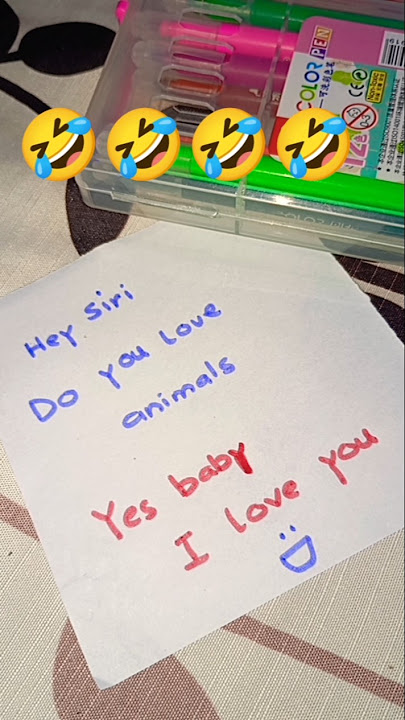 COLOR PEN
Hey Siri
Do you love
animals
Yes baby
I love you